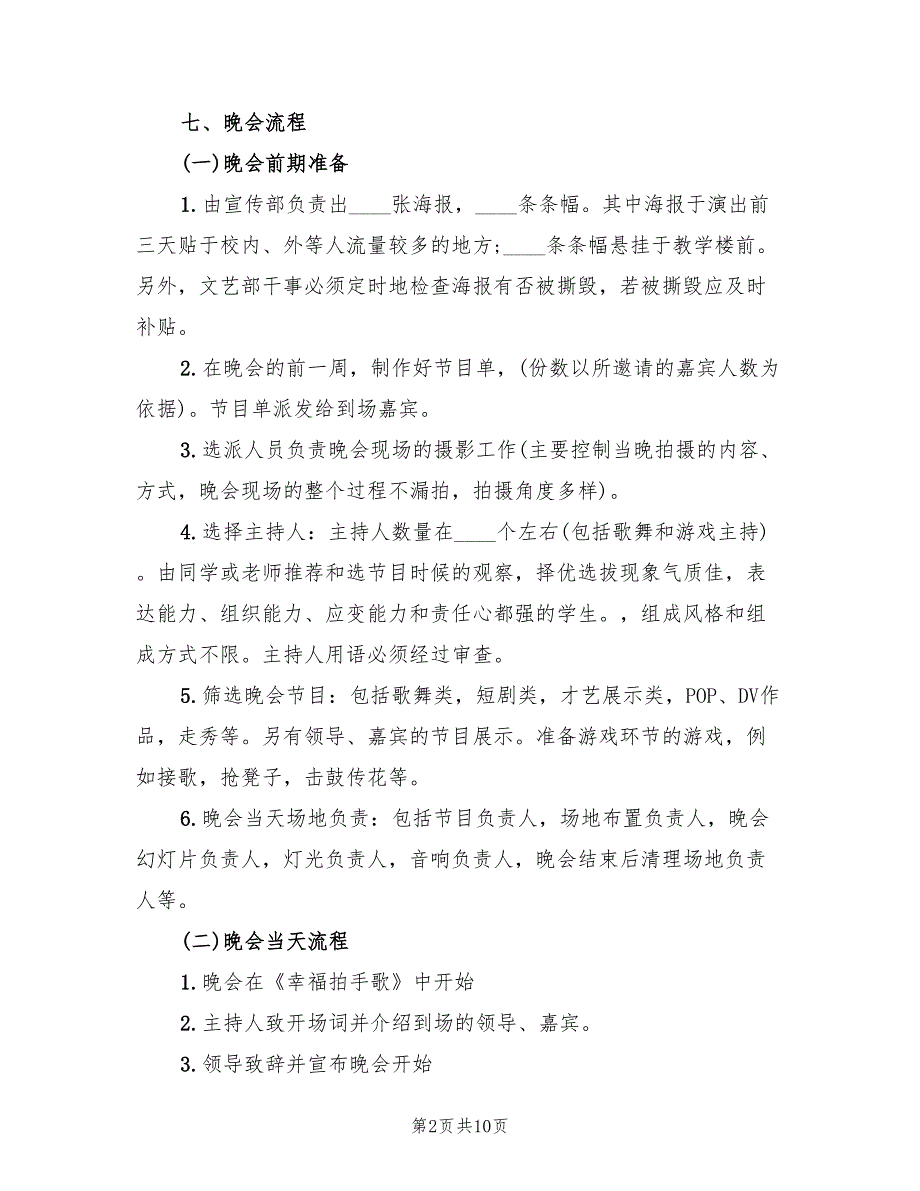 七、晚会流程
(一)晚会前期准备
1.由宣传部负责出____张海报，____条条幅。其中海报于演出前
三天贴于校内、外等人流量较多的地方;____条条幅悬挂于教学楼前。
另外，文艺部干事必须定时地检查海报有否被撕毁，若被撕毁应及时
补贴。
2.在晚会的前一周，制作好节目单，(份数以所邀请的嘉宾人数为
依据)。节目单派发给到场嘉宾。
3.选派人员负责晚会现场的摄影工作(主要控制当晚拍摄的内容、
方式，晚会现场的整个过程不漏拍，拍摄角度多样)。
4.选择主持人：主持人数量在____个左右(包括歌舞和游戏主持)
。由同学或老师推荐和选节目时候的观察，择优选拔现象气质佳，表
达能力、组织能力、应变能力和责任心都强的学生。，组成风格和组
成方式不限。主持人用语必须经过审查。
5.筛选晚会节目：包括歌舞类，短剧类，才艺展示类，POP、DV作
品，走秀等。另有领导、嘉宾的节目展示。准备游戏环节的游戏，例
如接歌，抢凳子，击鼓传花等。
6.晚会当天场地负责：包括节目负责人，场地布置负责人，晚会
幻灯片负责人，灯光负责人，音响负责人，晚会结束后清理场地负责
人等。
(二)晚会当天流程
1.晚会在《幸福拍手歌》中开始
2.主持人致开场词并介绍到场的领导、嘉宾。
3.领导致辞并宣布晚会开始
第2页共10页